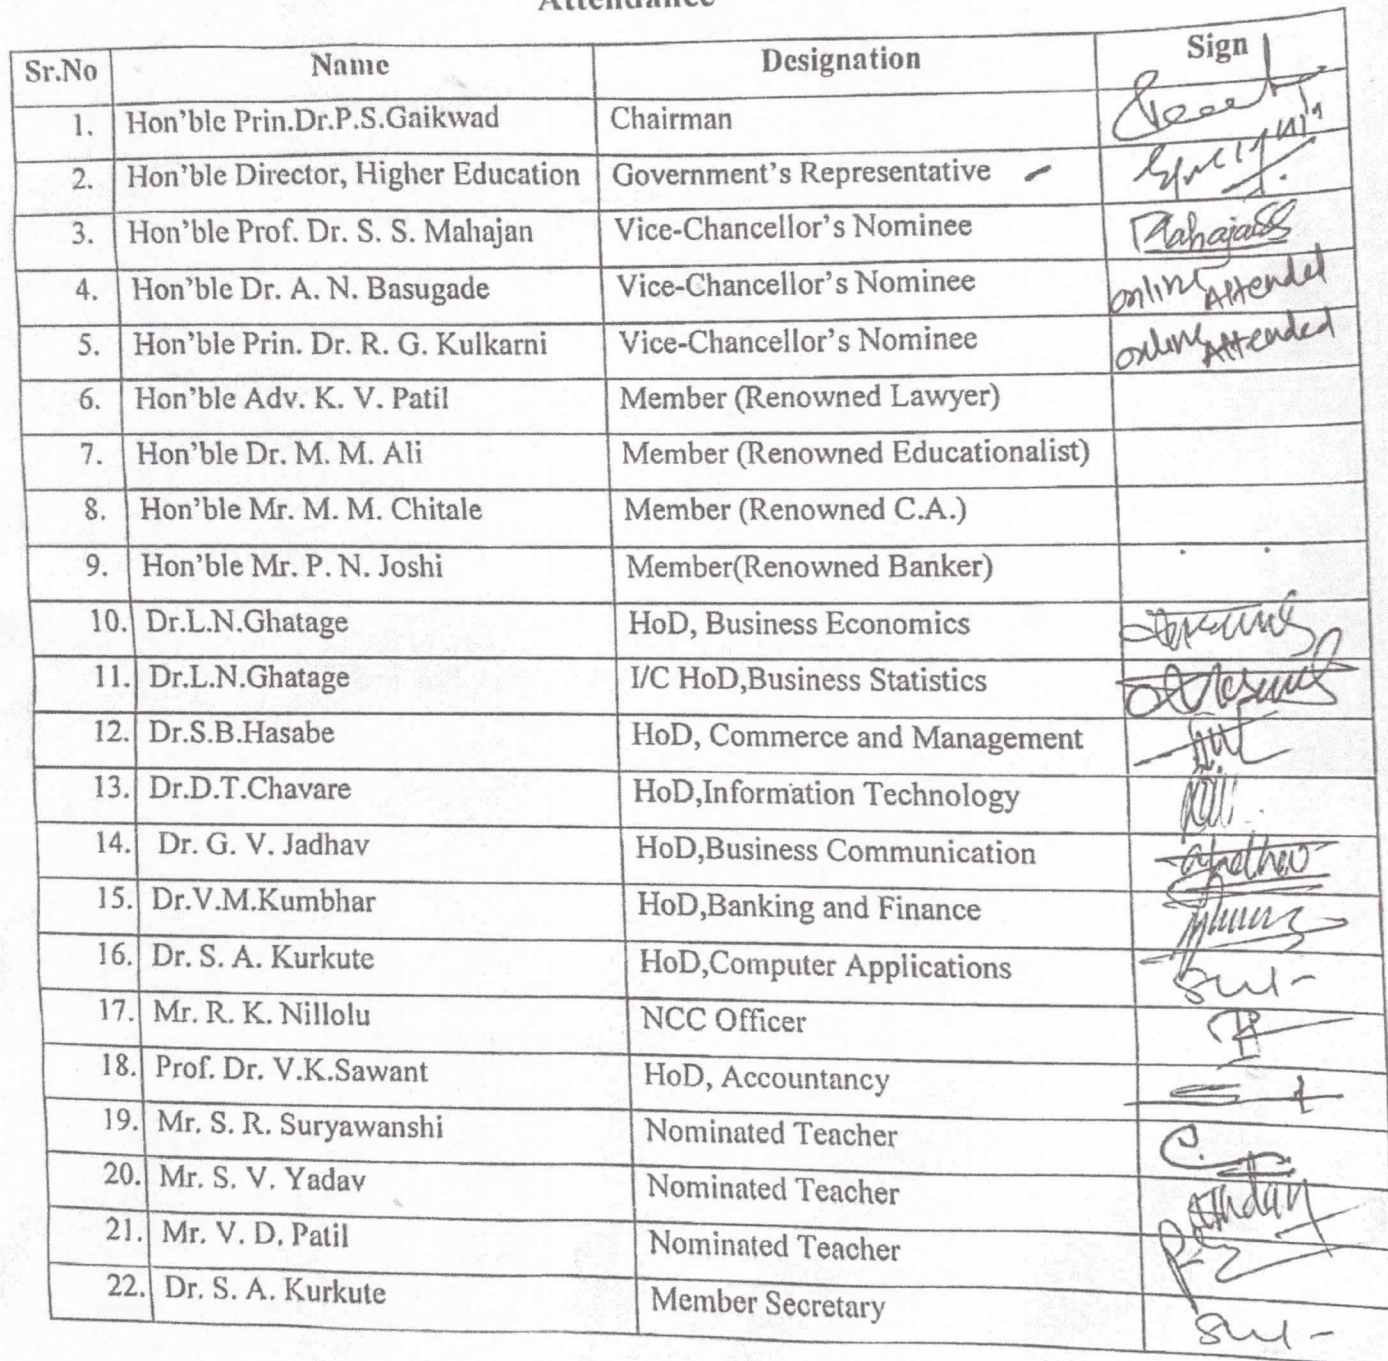 Attendance
Sr.No Name Designation Sign
1. Hon'ble Prin.Dr.P.S.Gaikwad Chairman
2. Hon'ble Director, Higher Education Government's Representative
3. Hon'ble Prof. Dr. S. S. Mahajan Vice-Chancellor's Nominee MahajanSS
4. Hon'ble Dr. A. N. Basugade Vice-Chancellor's Nominee online Attended
5. Hon'ble Prin. Dr. R. G. Kulkarni Vice-Chancellor's Nominee online Attended
6. Hon'ble Adv. K. V. Patil Member (Renowned Lawyer)
7. Hon'ble Dr. M. M. Ali Member (Renowned Educationalist)
8. Hon'ble Mr. M. M. Chitale Member (Renowned C.A.)
9. Hon'ble Mr. P. N. Joshi Member(Renowned Banker)
10. Dr.L.N.Ghatage HoD, Business Economics
11. Dr.L.N.Ghatage I/C HoD,Business Statistics
12. Dr.S.B.Hasabe HoD, Commerce and Management
13. Dr.D.T.Chavare HoD,Information Technology
14. Dr. G. V. Jadhav HoD,Business Communication
15. Dr.V.M.Kumbhar HoD,Banking and Finance
16. Dr. S. A. Kurkute HoD,Computer Applications
17. Mr. R. K. Nillolu NCC Officer
18. Prof. Dr. V.K.Sawant HoD, Accountancy
19. Mr. S. R. Suryawanshi Nominated Teacher
20. Mr. S. V. Yadav Nominated Teacher
21. Mr. V. D. Patil Nominated Teacher
22. Dr. S. A. Kurkute Member Secretary